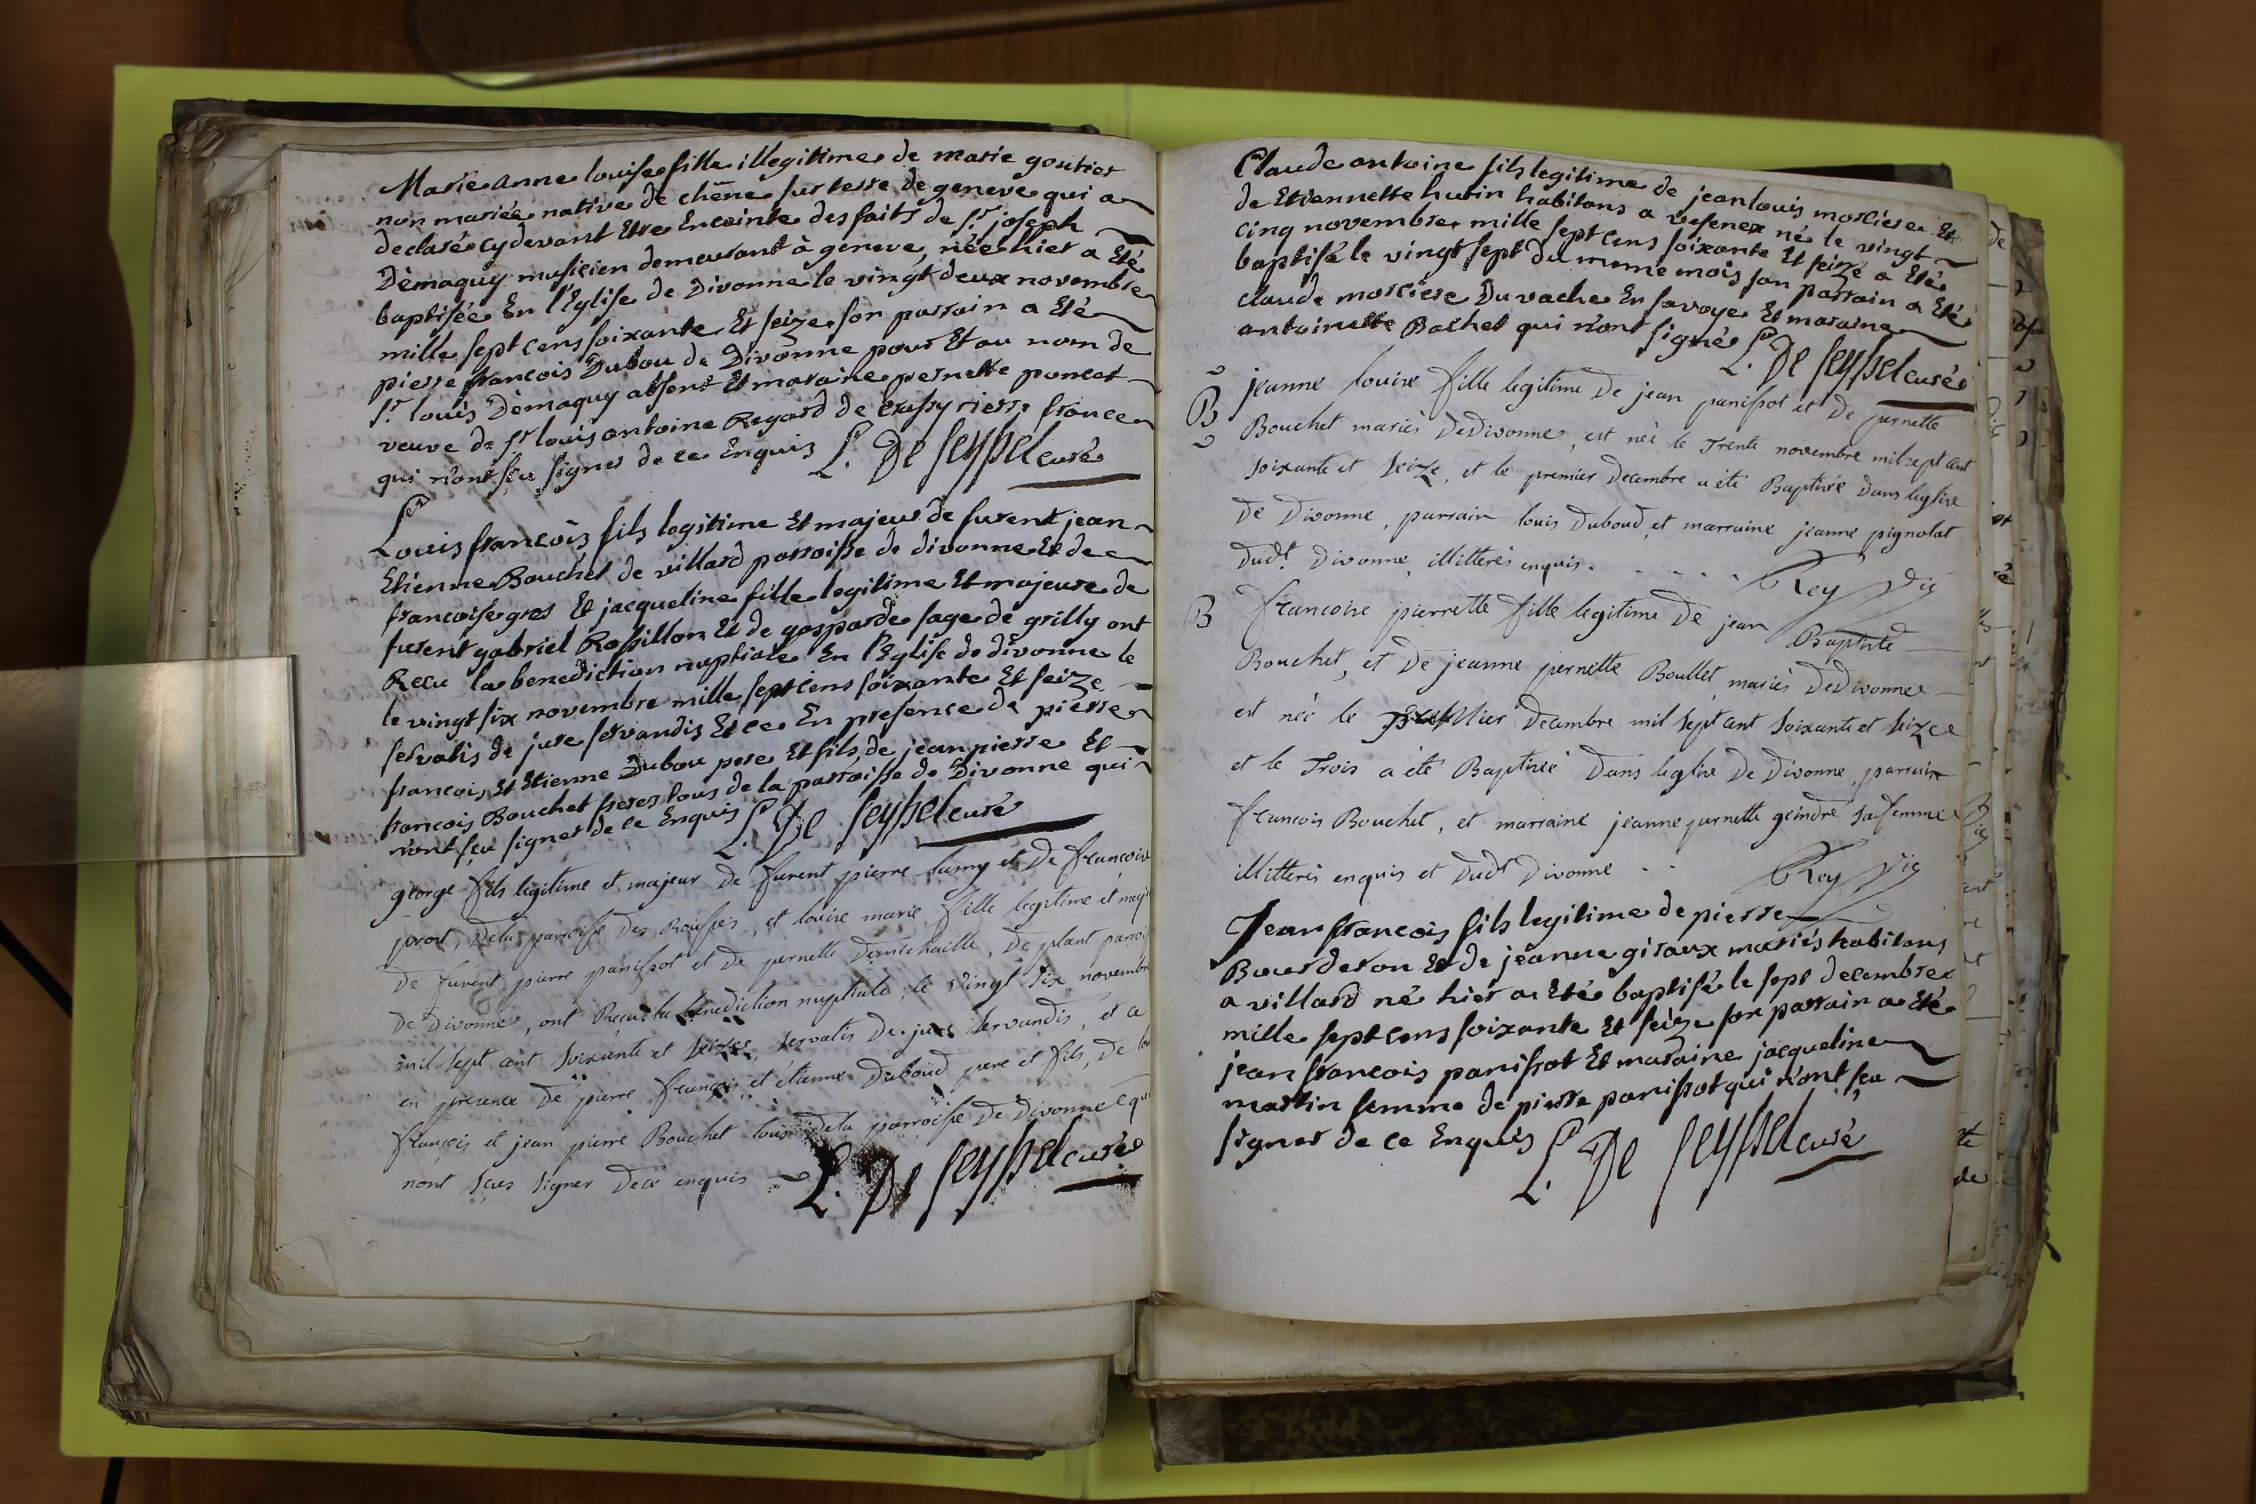 Marie anne louise fille illegitime de marie goutier
non mariée native de chêne sur terre de geneve qui a
declaré cy devant Etre Enceinte des faits de Sr. joseph
Dèmaquy musicien demeurant à geneve, née hier a Eté
baptisée En l'Eglise de Divonne le vingt deux novembre
mille sept cens soixante Et seize son parrain a Eté
pierre francois Dubou de Divonne pour Et au nom de
Sr. louis Dèmaquy absent Et maraine pernette poncet
veuve de Sr louis antoine Regard de Crassy riere france
qui n'ont sçu signer de ce Enquis L. De seyssel curé
Louis francois fils legitime Et majeur de furent jean
Etienne Bouchet de villard parroisse de divonne Et de
francoise gros Et jacqueline fille legitime Et majeure de
furent gabriel Rossillon Et de gasparde sage de grilly ont
Recu la benediction nuptiale En l'Eglise de divonne le
le vingt six novembre mille sept cens soixante Et seize
servatis de jure servandis Et ce En presence de pierre
francois Et Etienne Dubou pere Et fils, de jean pierre Et
francois Bouchet freres tous de la parroisse de Divonne qui
n'ont sçu signer de ce Enquis L. De seyssel curé
george fils legitime et majeur de furent pierre lamy et De francoise
prost, Dela parroisse Des Rousses, et louise marie fille legitime et maj
De furent pierre panissot et De pernette Dentehaille, De plant parroi
De Divonne, ont Recu la benediction nuptiale, le vingt six novembre
mil sept cent soixante et seize, servatis De jure servandis, et ce
en presence De pierre francois et étienne Duboud pere et fils, De
francois et jean pierre Bouchet tous Dela parroisse De Divonne qui
nont sçus signer Dece enquis L. De seyssel curé
Claude antoine fils legitime de jean louis morciere Et
de Etiennette hutin habitans a vesenex né le vingt
cinq novembre mille sept cens soixante Et seize a Eté
baptisé le vingt sept du meme mois son parrain a Eté
claude morciere Du vache En savoye Et maraine
antoinette Bachet qui n'ont signé L. De seyssel curé
B jeanne louise fille legitime De jean panissot et De pernette
Bouchet mariés DeDivonne, est née le Trente novembre mil sept cent
soixante et seize, et le premier Decembre a été Baptisée Dans leglise
De Divonne, parrain louis Duboud, et marraine jeanne pignolat
Dudt. Divonne, illitterés enquis. Rey Vic
B francoise pierrette fille legitime De jean Baptiste
Bouchet, et De jeanne pernette Boullet mariés DeDivonne
est née le premier Decembre mil sept cent soixante et seize
et le Trois a été Baptisée Dans leglise De Divonne, parrain
francois Bouchet, et marraine jeanne pernette geindre sa femme
illitterés enquis et Dudt Divonne Rey Vic
Jean francois fils legitime de pierre
Bourderon Et de jeanne giraux mariés habitans
a villard né hier a Eté baptisé le sept decembre
mille sept cens soixante Et seize son parrain a Eté
jean francois panissot Et maraine jacqueline
martin femme de pierre panissot qui n'ont sçu
signer de ce Enquis L. De seyssel curé